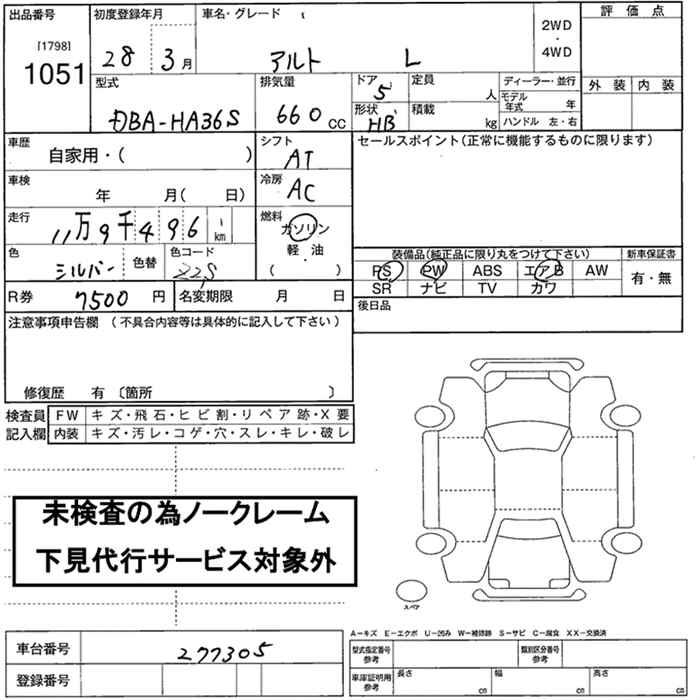 出品番号 初度登録年月 車名・グレード 2WD ・ 4WD 評価点
[1798]
1051 28 3月 アルト L
型式 排気量 ドア 5 定員 人 ディーラー・並行 外装 内装
DBA-HA36S 660cc 形状 HB 積載 kg モデル年式 年
ハンドル 左・右
車歴 自家用・( ) シフト AT セールスポイント(正常に機能するものに限ります)
車検 年 月( 日) 冷房 AC
走行 11万9千496km 燃料 ガソリン
軽・油
( )
色 シルバー 色替 色コード 装備品(純正品に限り丸をつけて下さい) 新車保証書
PS PW ABS エアB AW 有・無
SR ナビ TV カワ
R券 7500円 名変期限 月 日 後日品
注意事項申告欄 (不具合内容等は具体的に記入して下さい)
修復歴 有 〔箇所 〕
検査員 FW キズ・飛石・ヒビ割・リペア跡・X要
記入欄 内装 キズ・汚レ・コゲ・穴・スレ・キレ・破レ
未検査の為ノークレーム
下見代行サービス対象外
スペア
A-キズ E-エクボ U-凹み W-補修跡 S-サビ C-腐食 XX-交換済
車台番号 277305 型式指定番号 参考 類別区分番号 参考
登録番号 車庫証明用 参考 長さ cm 幅 cm 高さ cm